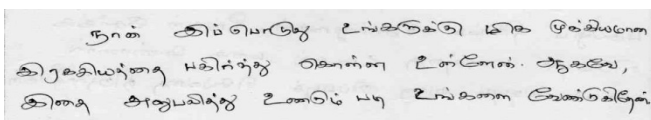 நான் இப்பொழுது உங்களுக்கு மிக முக்கியமான
இரகசியத்தை பகிர்ந்து கொள்ள உள்ளேன். ஆகவே,
இதை அனுபவித்து உணரும் படி உங்களை வேண்டுகிறேன்